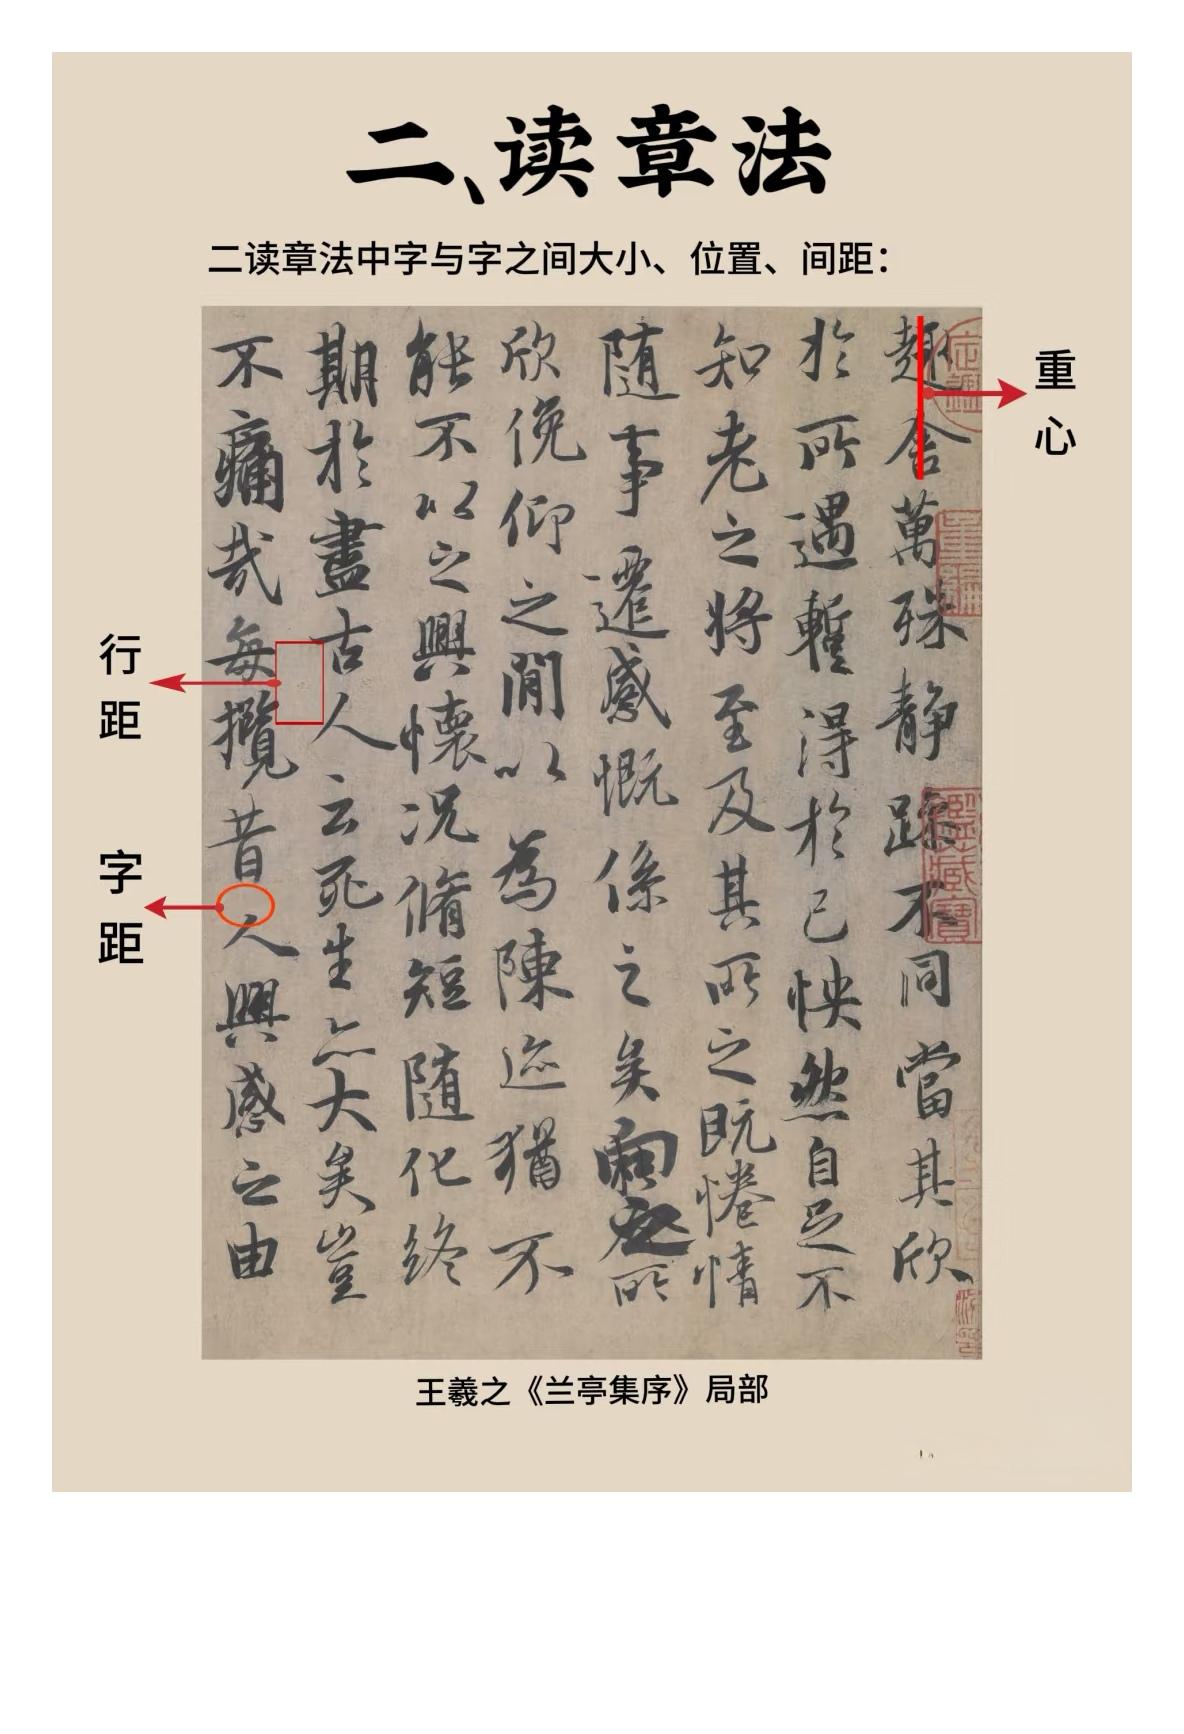 二、读章法
二读章法中字与字之间大小、位置、间距：
趣舍萬殊静躁不同當其欣
於所遇暫得於己怏然自足不
知老之将至及其所之既惓情
随事遷感慨係之矣向之所
欣俛仰之閒以為陳迹猶不
能不以之興懷况脩短随化终
期於盡古人云死生亦大矣豈
不痛哉每攬昔人興感之由
重心
行距
字距
王羲之《兰亭集序》局部